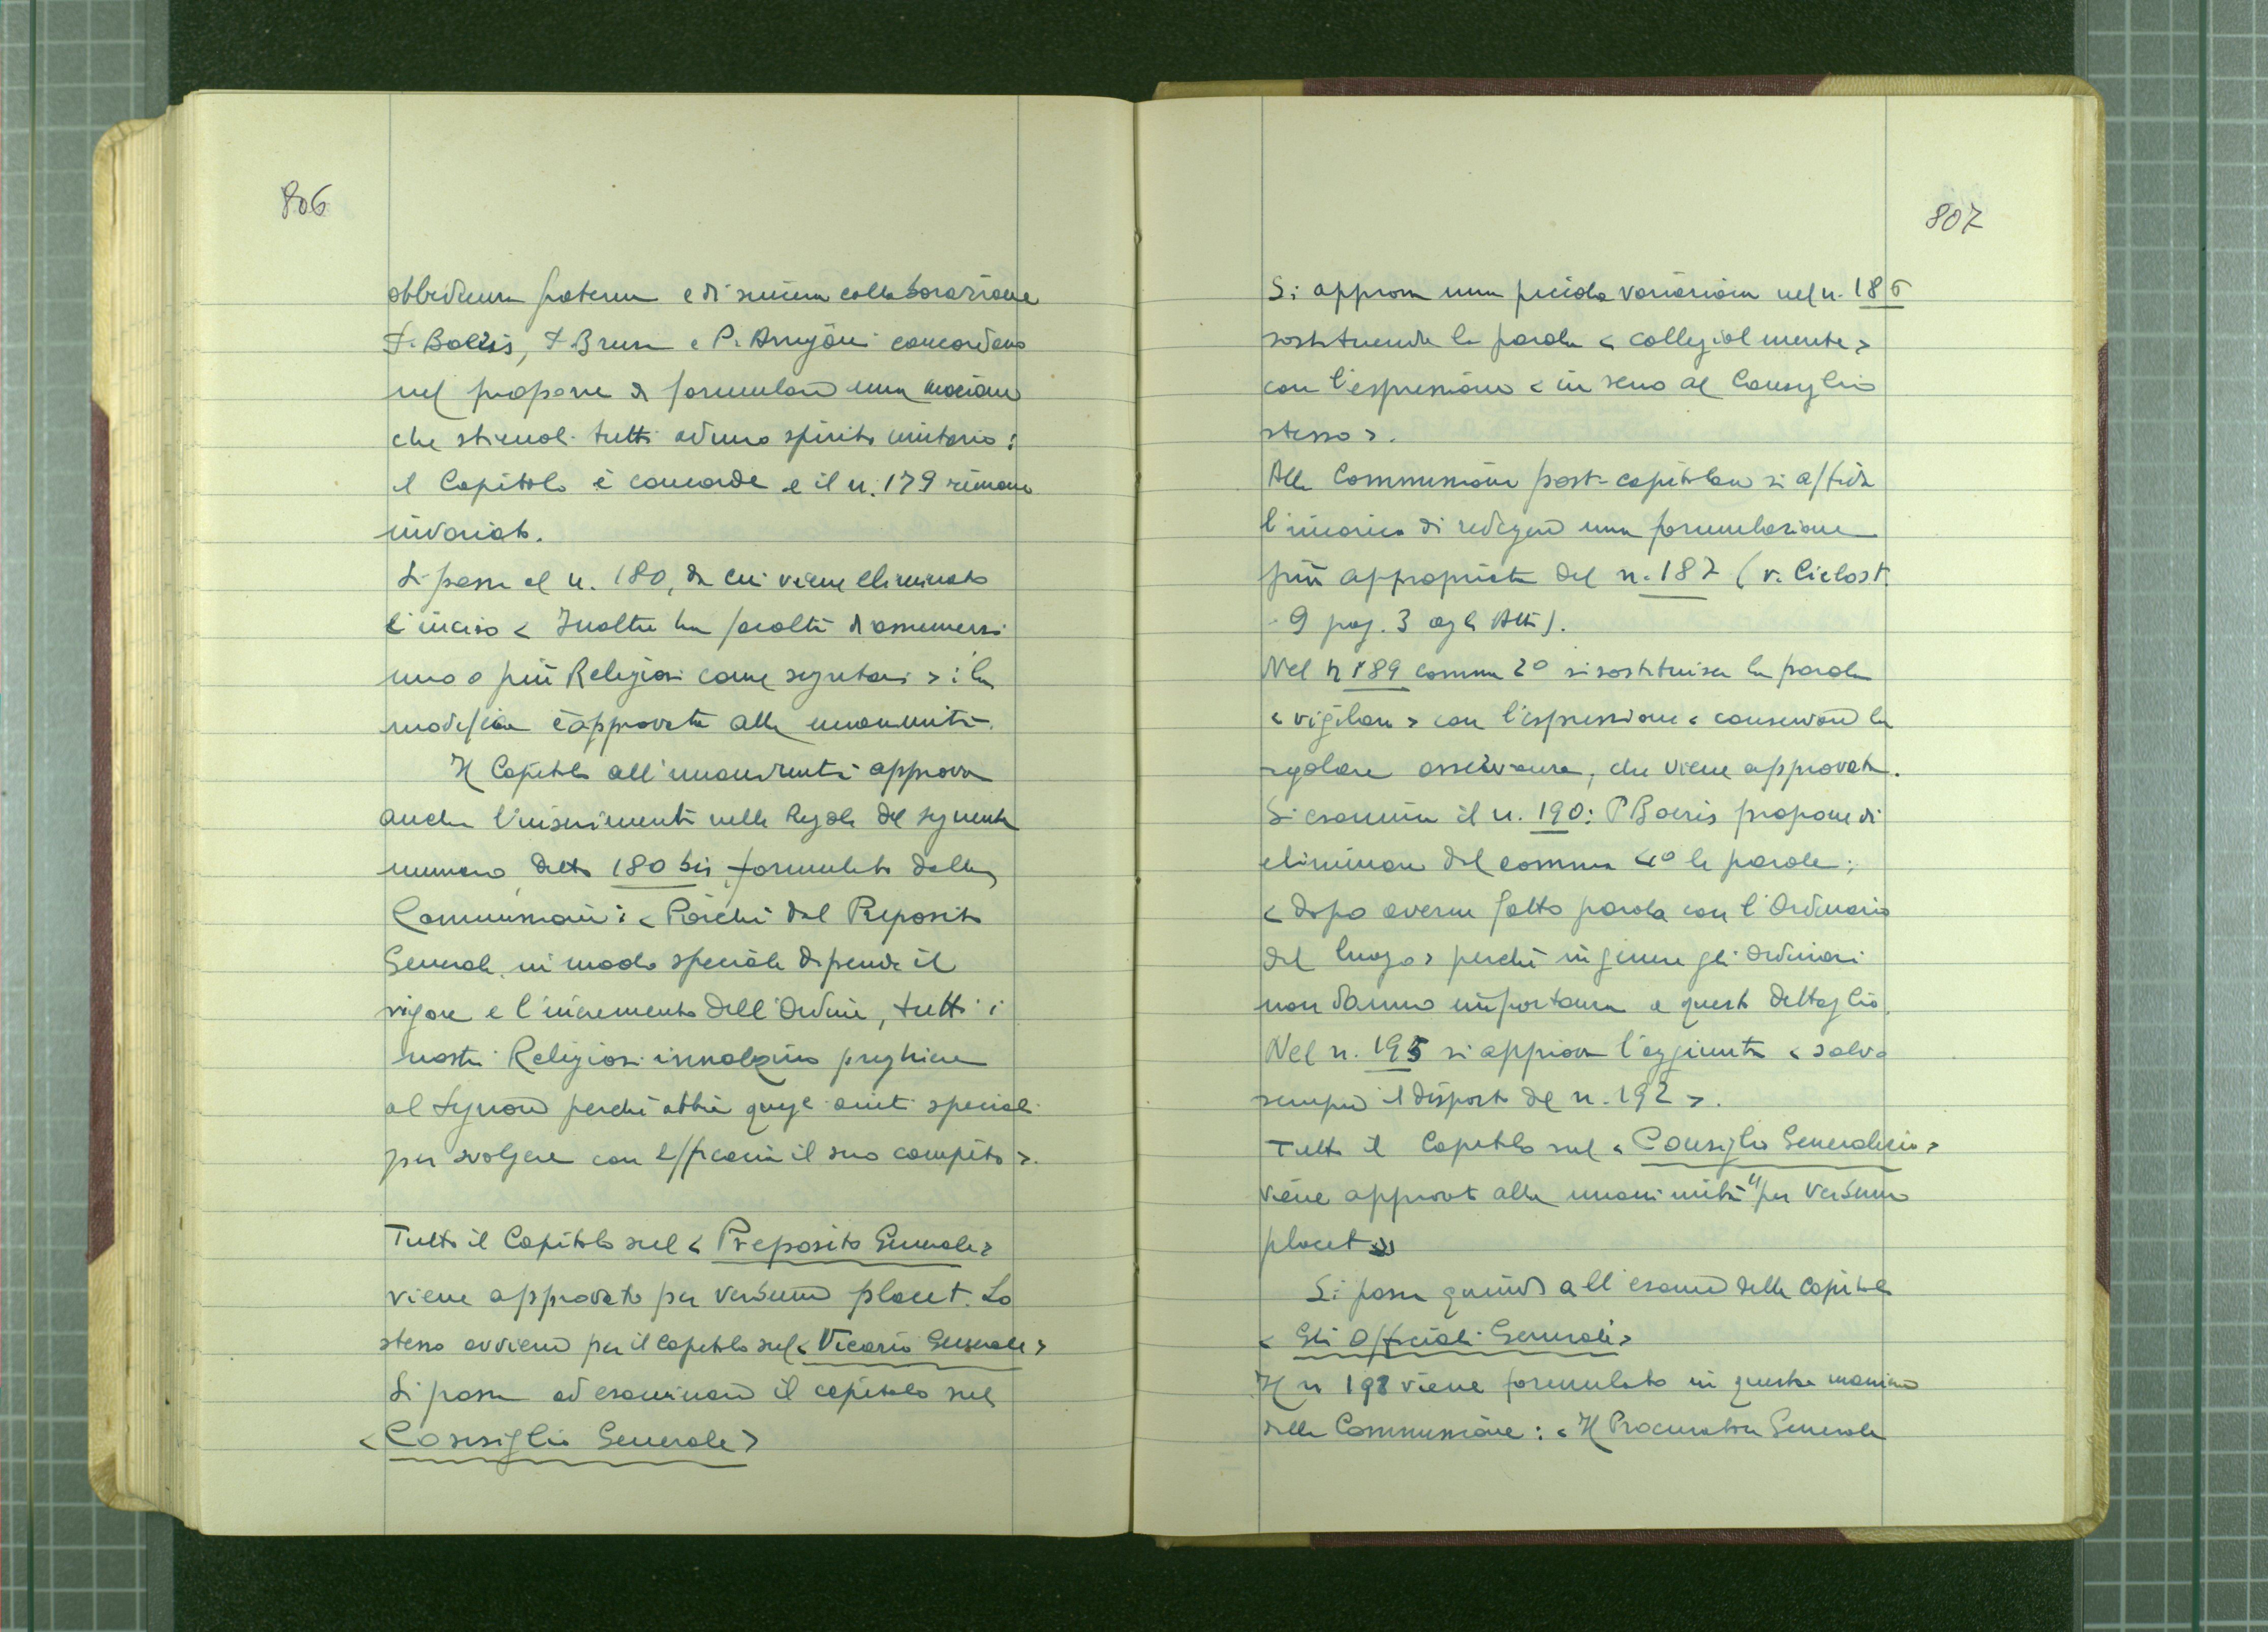 806
obbedienza fraterna e di sincera collaborazione
P. Boeris, P. Brusa e P. Arrigoni concordano
nel proporre di formulare una mozione
che stimoli tutti ad uno spirito unitario:
il Capitolo è concorde e il n. 179 rimane
invariato.
Si passa al n. 180, da cui viene eliminato
l'inciso < Inoltre ha facoltà di assumersi
uno o più Religiosi come segretari > : la
modifica è approvata alla unanimità.
Il Capitolo all'unanimità approva
anche l'inserimento nelle Regole del seguente
numero, detto 180 bis, formulato dalla
Commissione: < Poiché dal Preposito
Generale in modo speciale dipende il
vigore e l'incremento dell'Ordine, tutti i
nostri Religiosi innalzino preghiere
al Signore perché abbia quegli aiuti speciali
per svolgere con efficacia il suo compito >.
Tutto il Capitolo sul < Preposito Generale >
viene approvato per verbum placet. Lo
stesso avviene per il capitolo sul < Vicario Generale >
Si passa ad esaminare il capitolo sul
< Consiglio Generale >
807
Si approva una piccola variazione nel n. 186
sostituendo la parola < collegialmente >
con l'espressione < in seno al Consiglio
stesso >.
Alla Commissione post-capitolare si affida
l'incarico di redigere una formulazione
più appropriata del n. 187 (v. Ciclost.
9 pag. 3 agli Atti).
Nel n 189 comma 2º si sostituisce la parola
< vigilare > con l'espressione < conservare la
regolare osservanza, che viene approvata.
Si esamina il n. 190: P Boeris propone di
eliminare dal comma 4º le parole:
< dopo averne fatto parola con l'Ordinario
del luogo > perché in genere gli Ordinari
non danno importanza a questo dettaglio.
Nel n. 195 si approva l'aggiunta < salvo
sempre il disposto del n. 192 >.
Tutto il Capitolo sul < Consiglio Generalizio >
viene approvato alla unanimità "per verbum
placet"
Si passa quindi all'esame del capitolo
< Gli Officiali Generali >
Il n 198 viene formulato in questa maniera
dalla Commissione: < Il Procuratore Generale